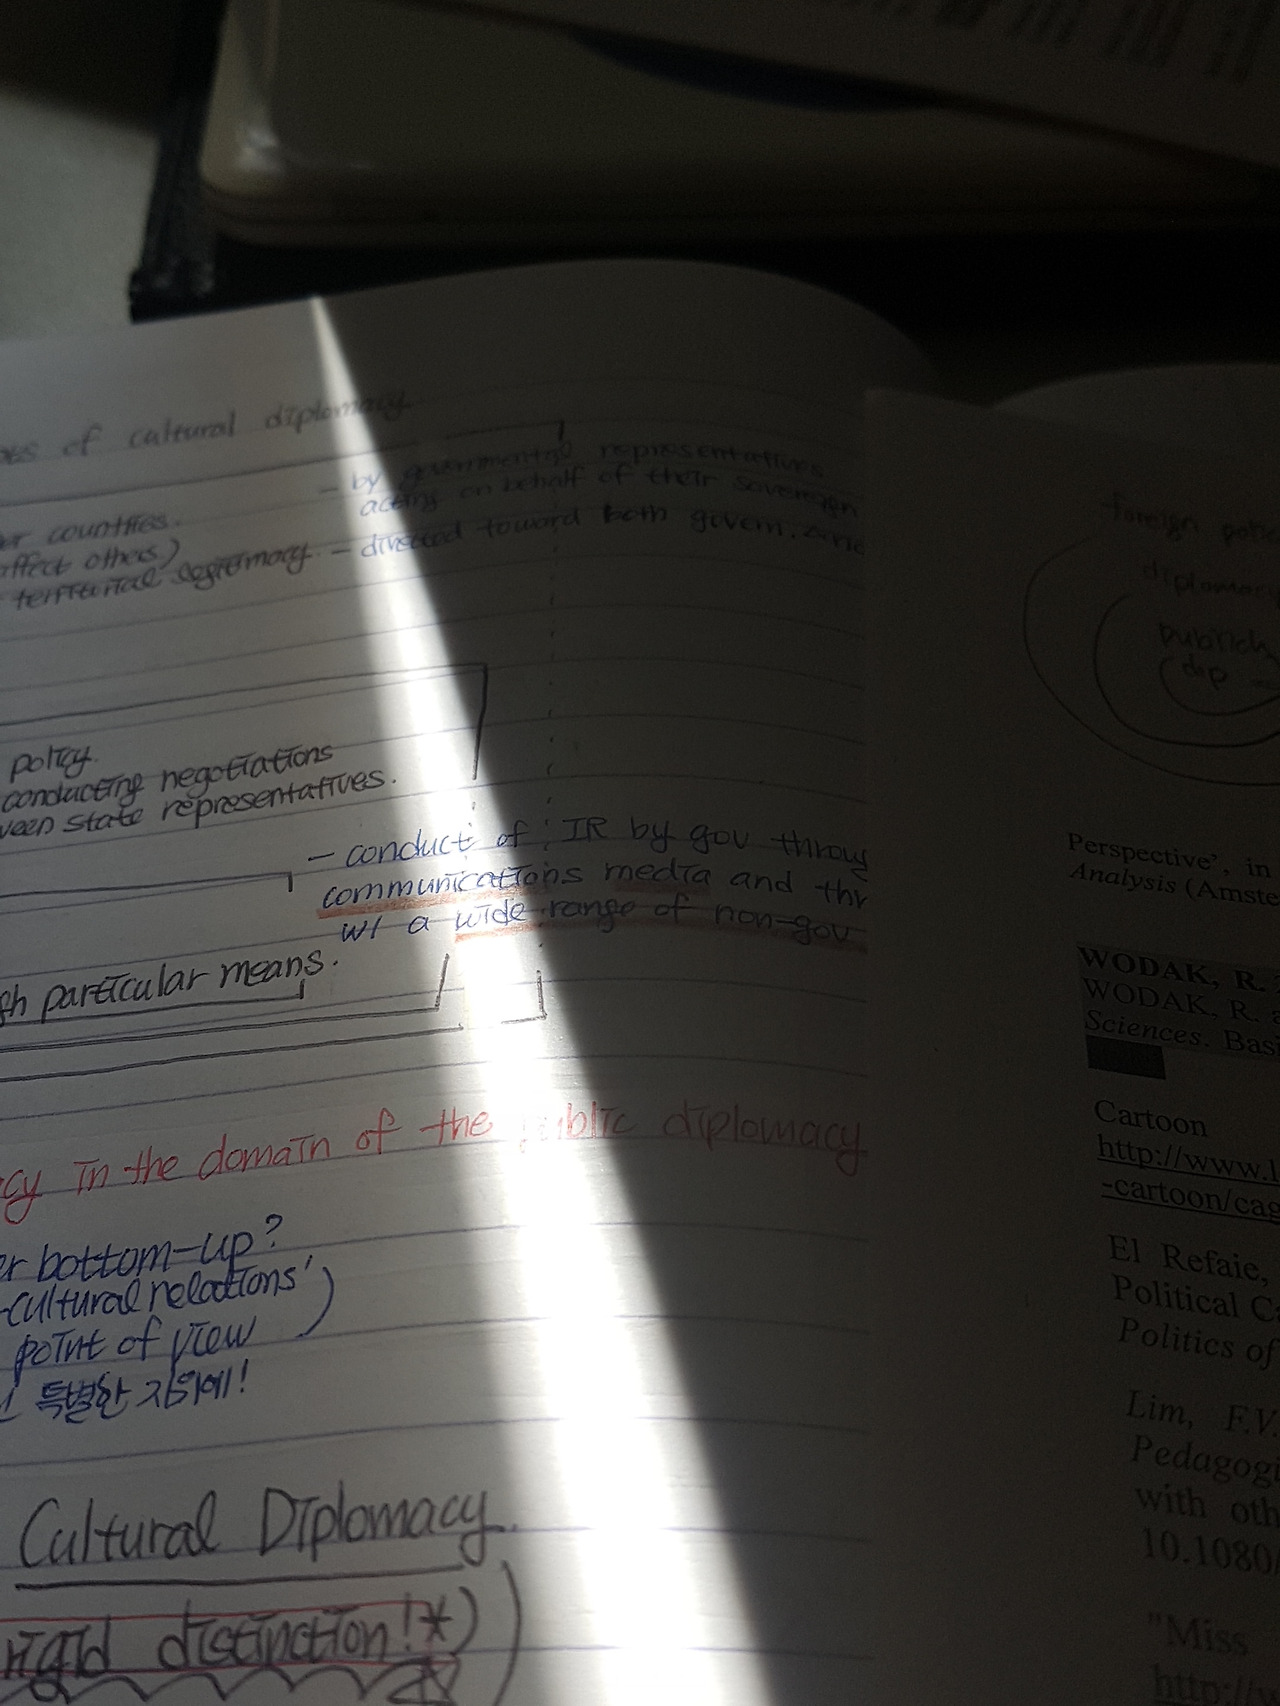 of cultural diplomacy
- by governmental representatives
acting on behalf of their sovereign
countries.
affect others)
territorial legitimacy. - directed toward both govern. and
policy.
conducting negotiations
state representatives.
- conduct of IR by gov throug
communications media and thr
w/ a wide range of non-gov
particular means.
cy in the domain of the public diplomacy
er bottom-up?
-cultural relations')
point of view
특별한 지위에!
Cultural Diplomacy
rigid distinction!*))
foreign polic
diplomac
public
dip
Perspective', in
Analysis (Amste
WODAK, R.
WODAK, R.
Sciences. Bas
Cartoon
http://www.
-cartoon/cag
El Refaie,
Political C
Politics of
Lim, F.V.
Pedagogi
with oth
10.1080
"Miss
http://w